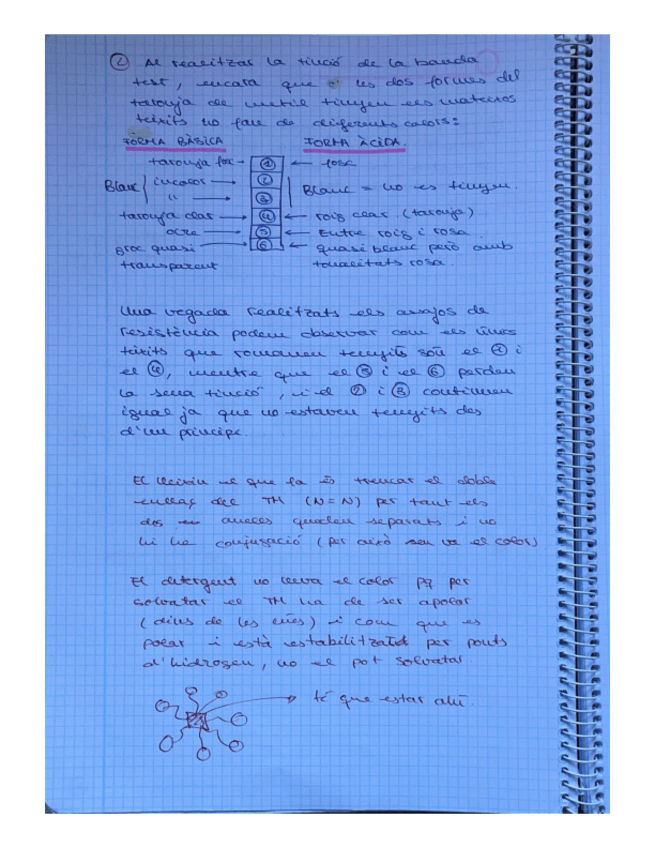 ② Al realitzar la tinció de la banda
test, encara que les dos formes del
taronja de metil tinyen els mateixos
teixits ho fan de diferents colors:
FORMA BÀSICA FORMA ÀCIDA.
taronja fos → ① ← fosc
Blanc incolor → ② Blanc = no es tinyen.
" → ③
taronja clar → ④ ← roig clar (taronja)
ocre → ⑤ ← Entre roig i rosa
groc quasi → ⑥ ← quasi blanc però amb
transparent tonalitats rosa
Una vegada realitzats els assajos de
resistència podem observar com els únics
teixits que romanen tenyits són el ① i
el ④, mentre que el ⑤ i el ⑥ perden
la seua tinció, i el ② i ③ continuen
igual ja que no estaven tenyits des
d'un principi.
El lleixiu el que fa és trencar el doble
enllaç del TM (N=N) per tant els
dos anells queden separats i no
hi ha conjugació (per això se'n va el color)
El detergent no lleva el color pq per
solvatar el TM ha de ser apolar
(dins de les ) i com que es
polar i està estabilitzat per ponts
d'hidrogen, no el pot solvatar
té que estar ahí.